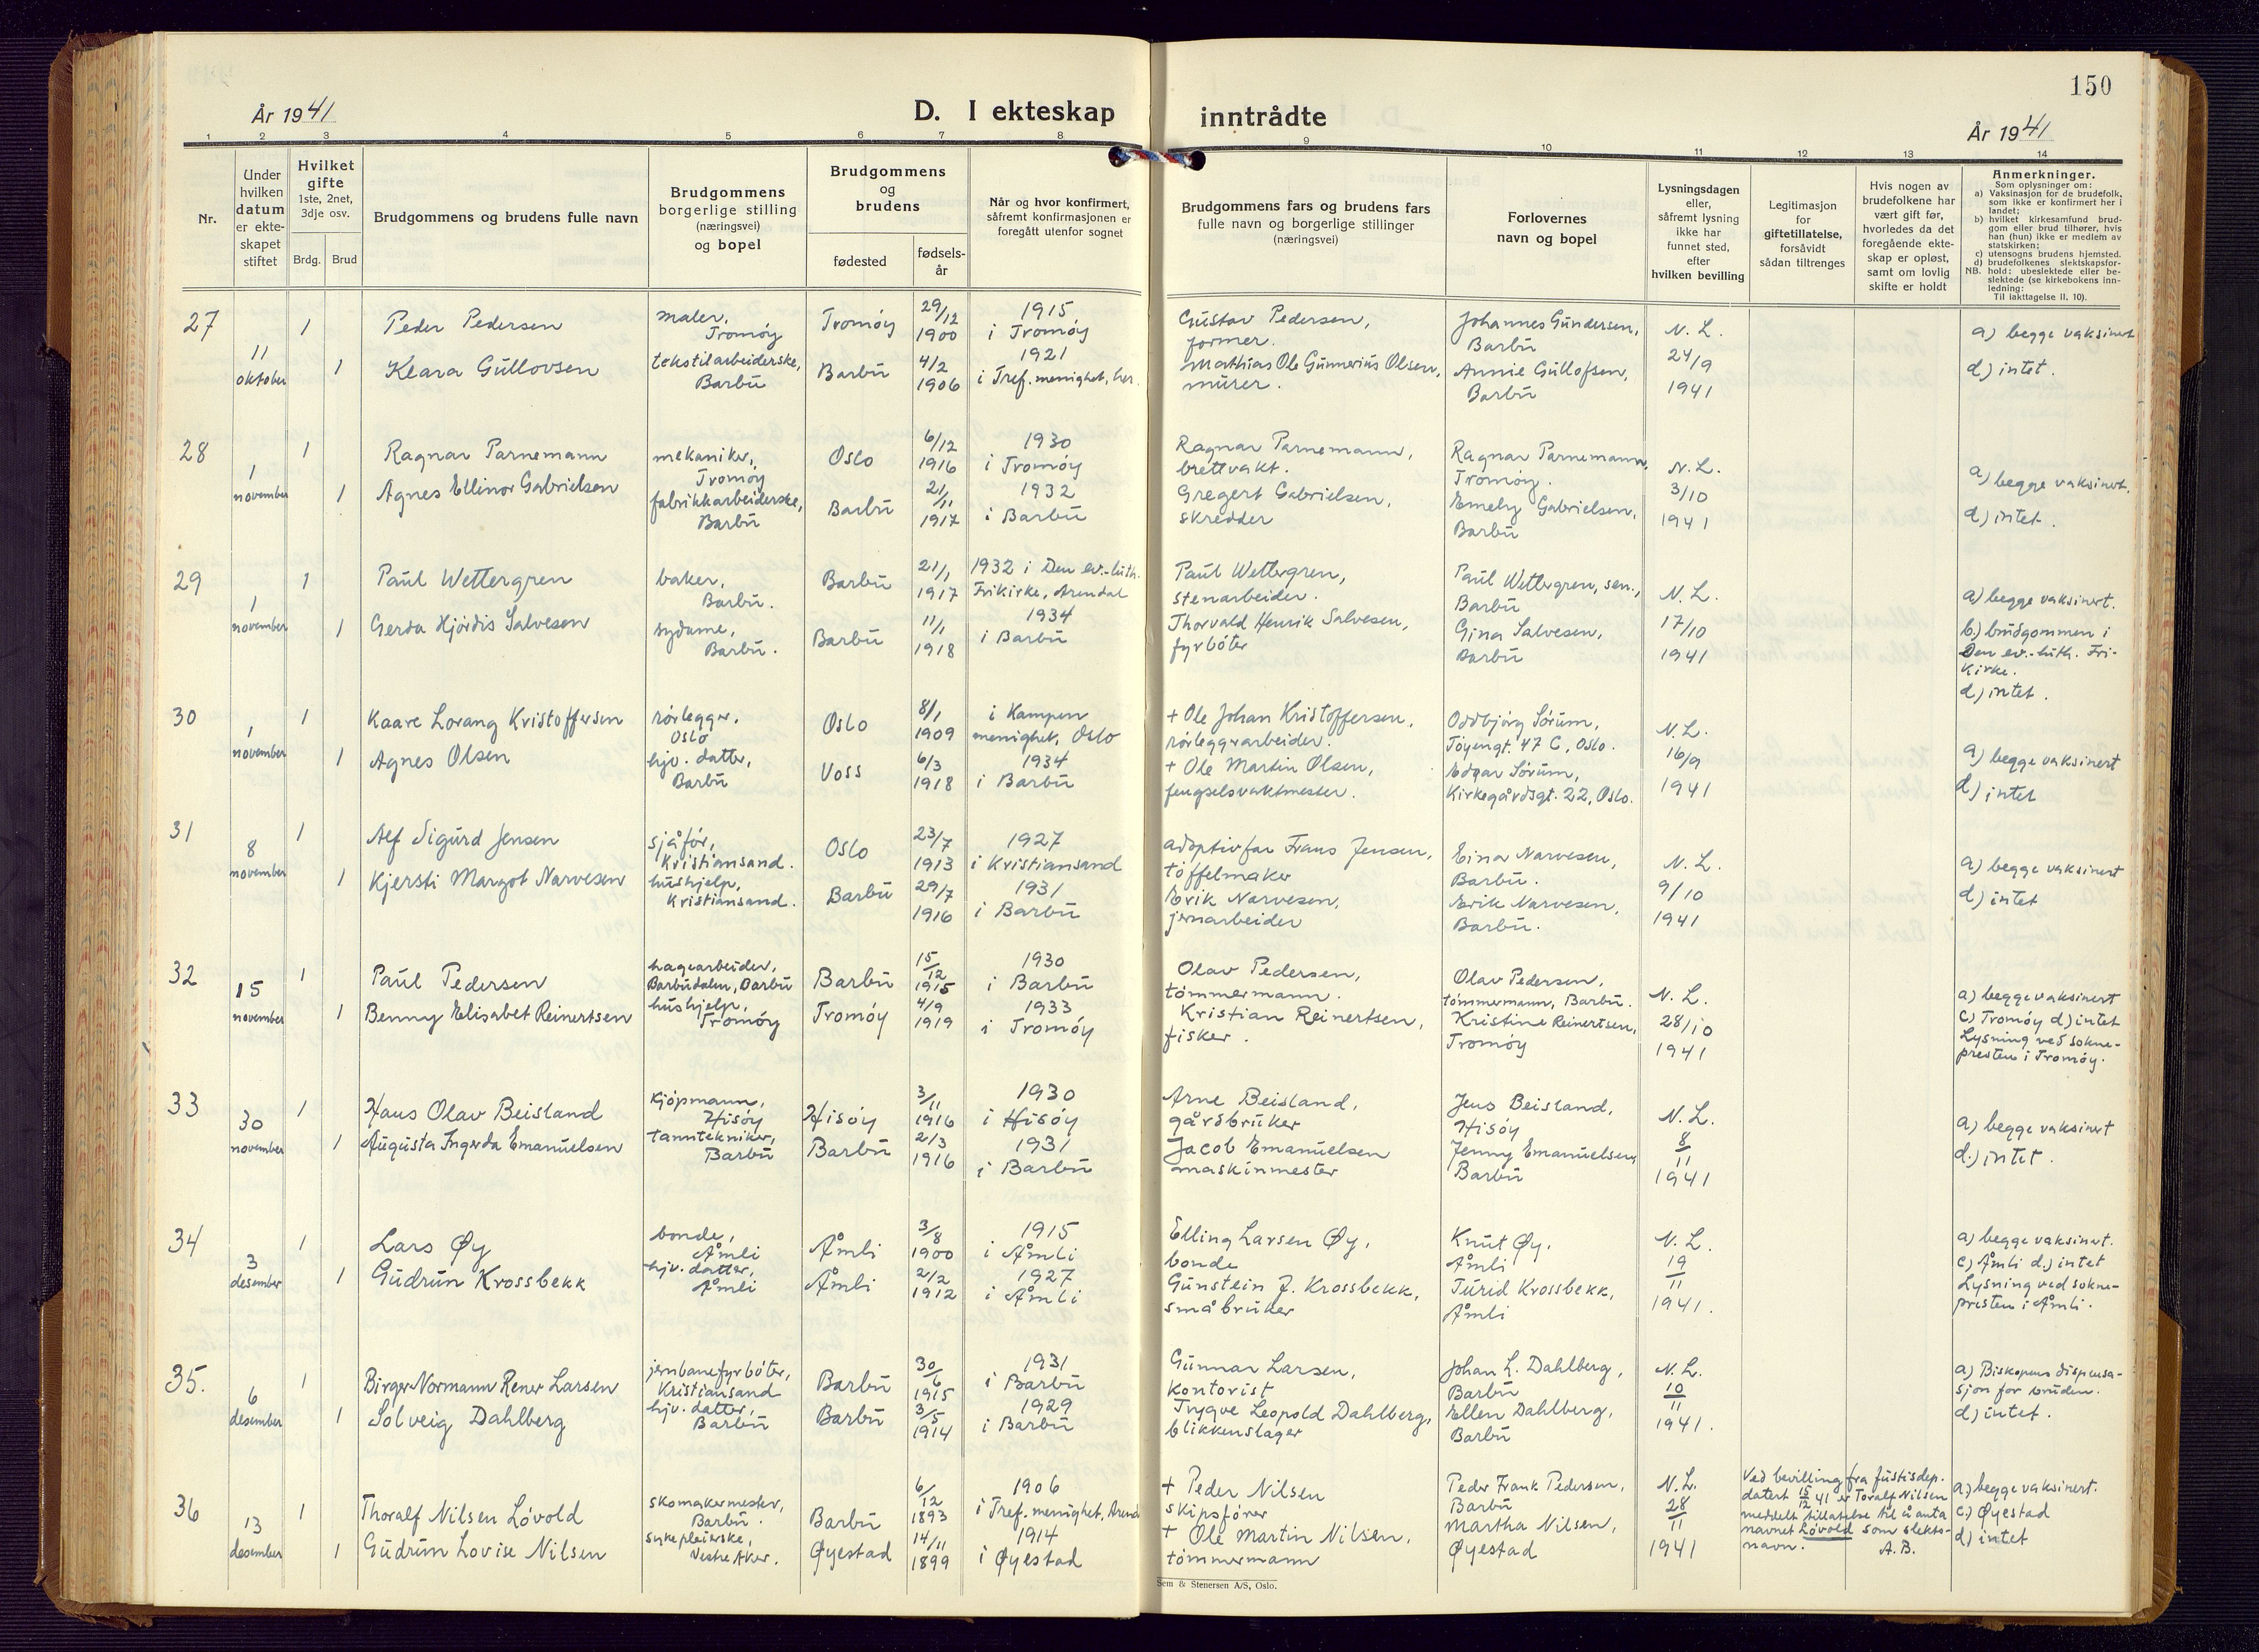 150
År 1941
D. I ekteskap inntrådte
År 1941
1 2 3 4 5 6 7 8 9 10 11 12 13 14
Nr.
Under hvilken datum er ekte-skapet stiftet
Hvilket gifte 1ste, 2net, 3dje osv.
Brdg. Brud
Brudgommens og brudens fulle navn
Brudgommens borgerlige stilling (næringsvei) og bopel
Brudgommens og brudens
fødested
fødsels-år
Når og hvor konfirmert, såfremt konfirmasjonen er foregått utenfor sognet
Brudgommens fars og brudens fars fulle navn og borgerlige stillinger (næringsvei)
Forlovernes navn og bopel
Lysningsdagen eller, såfremt lysning ikke har funnet sted, efter hvilken bevilling
Legitimasjon for giftetillatelse, forsåvidt sådan tiltrenges
Hvis nogen av brudefolkene har vært gift før, hvorledes da det foregående ekte-skap er opløst, samt om lovlig skifte er holdt
Anmerkninger.
Som oplysninger om:
a) Vaksinasjon for de brudefolk, som ikke er konfirmert her i landet;
b) hvilket kirkesamfund brud-gom eller brud tilhører, hvis han (hun) ikke er medlem av statskirken;
c) utensogns brudens hjemsted.
d) brudefolkenes slektskapsfor-hold: ubeslektede eller be-slektede (se kirkebokens inn-ledning:
NB.
Til iakttagelse II, 10).
27
11 oktober
1 Peder Pedersen
maler, Tromøy
Tromøy
29/12 1900
1915 i Tromøy
Gustav Pedersen, former.
Johannes Gundersen, Barbu
1 Klara Gullovsen
tekstilarbeiderske, Barbu
Barbu
4/2 1906
1921 i Tref. menighet, her.
Mathias Ole Gunnerius Olsen, murer.
Annie Gullofsen, Barbu
N. L. 24/9 1941
a) begge vaksinert
d) intet.
28
1 november
1 Ragnar Parnemann
mekaniker, Tromøy
Oslo
6/12 1916
1930 i Tromøy
Ragnar Parnemann, brettvakt.
Ragnar Parnemann, Tromøy.
1 Agnes Ellinor Gabrielsen
fabrikkarbeiderske, Barbu
Barbu
21/11 1917
1932 i Barbu
Gregert Gabrielsen, skredder
Emely Gabrielsen, Barbu
N. L. 3/10 1941
a) begge vaksinert.
d) intet.
29
1 november
1 Paul Wettergren
baker, Barbu.
Barbu
21/1 1917
1932 i Den ev.-luth. Frikirke, Arendal
Paul Wettergren, stenarbeider.
Paul Wettergren, sen., Barbu
1 Gerda Hjördis Salvesen
sydame, Barbu.
Barbu
11/1 1918
1934 i Barbu
Thorvald Henrik Salvesen, fyrbøter
Gina Salvesen, Barbu
N. L. 17/10 1941
a) begge vaksinert.
b) brudgommen i
Den ev.-luth. Fri-
kirke.
d) intet.
30
1 november
1 Kaare Lorang Kristoffersen
rørlegger, Oslo
Oslo
8/1 1909
i Kampen menighet, Oslo
+ Ole Johan Kristoffersen, rørleggerarbeider.
Oddbjörg Sörum, Töyengt. 47 C, Oslo.
1 Agnes Olsen
hjv. datter, Barbu
Voss
6/3 1918
1934 i Barbu
+ Ole Martin Olsen, fengselsvaktmester.
Edgar Sörum, Kirkegårdsgt. 22, Oslo.
N. L. 16/9 1941
a) begge vaksinert
d) intet
31
8 november
1 Alf Sigurd Jensen
sjåfør, Kristiansand.
Oslo
23/7 1913
1927 i Kristiansand
adoptivfar Frans Jensen, töffelmaker
Einar Narvesen, Barbu.
1 Kjersti Margot Narvesen
hushjelp, Kristiansand.
Barbu
29/7 1916
1931 i Barbu
Erik Narvesen, jernarbeider
Erik Narvesen, Barbu.
N. L. 9/10 1941
a) begge vaksinert
d) intet
32
15 november
1 Paul Pedersen
hagearbeider, Barbudalen, Barbu
Barbu
15/12 1915
1930 i Barbu
Olav Pedersen, tömmermann.
Olav Pedersen, tömmermann, Barbu.
1 Benny Elisabet Reinertsen
hushjelp, Tromøy
Tromøy
4/9 1919
1933 i Tromøy
Kristian Reinertsen, fisker.
Kristine Reinertsen, Tromøy
N. L. 28/10 1941
a) begge vaksinert
c) Tromøy d) intet
Lysning ved sokne-
presten i Tromøy.
33
30 november
1 Hans Olav Beisland
kjöpmann, Hisöy
Hisöy
3/11 1916
1930 i Hisöy
Arne Beisland, gårdbruker
Jens Beisland, Hisöy
1 Augusta Ingerda Emanuelsen
tanntekniker, Barbu
Barbu
2/3 1916
1931 i Barbu
Jacob Emanuelsen maskinmester
Jenny Emanuelsen, Barbu
N. L. 8/11 1941
a) begge vaksinert
d.) intet.
34
3 desember
1 Lars Øy
bonde, Åmli
Åmli
3/8 1900
1915 i Åmli
Elling Larsen Øy, bonde
Knut Øy, Åmli
1 Gudrun Krossbekk
hjv. datter, Åmli
Åmli
2/2 1912
1927 i Åmli
Gunstein J. Krossbekk, småbruker
Turid Krossbekk, Åmli
N. L. 19/11 1941.
a) begge vaksinert.
c) Åmli d.) intet
Lysning ved sokne-
presten i Åmli.
35.
6 desember
1 Birger Normann Rener Larsen
jernbanefyrböter, Kristiansand
Barbu
30/6 1915
1931 i Barbu
Gunnar Larsen, kontorist
Johan L. Dahlberg, Barbu
1 Solveig Dahlberg
hjv. datter, Barbu
Barbu
3/5 1914
1929 i Barbu
Trygve Leopold Dahlberg, blikkenslager
Ellen Dahlberg, Barbu
N. L. 10/11 1941.
a) Biskopens dispensa-
sjon for bruden.
d) intet.
36
13 desember
1 Thoralf Nilsen Lövold
skomakermester, Barbu.
Barbu
6/12 1893
1906 i Tref. menighet, Arend
+ Peder Nilsen skipsförer
Peder Frank Pedersen, Barbu
1 Gudrun Lovise Nilsen
sykepleierske, Vestre Aker.
Øyestad
14/11 1899
1914 i Øyestad
+ Ole Martin Nilsen, tömmermann
Martha Nilsen, Øyestad
N. L. 28/11 1941
Ved bevilling fra Justisdep.
datert 15/12 41 er Toralf Nilsen
meddelt tillatelse til å anta
navnet Lövold som slekts-
navn. A. B.
a) begge vaksinert.
c) Øyestad
d) intet
Sem & Stenersen A/S, Oslo.